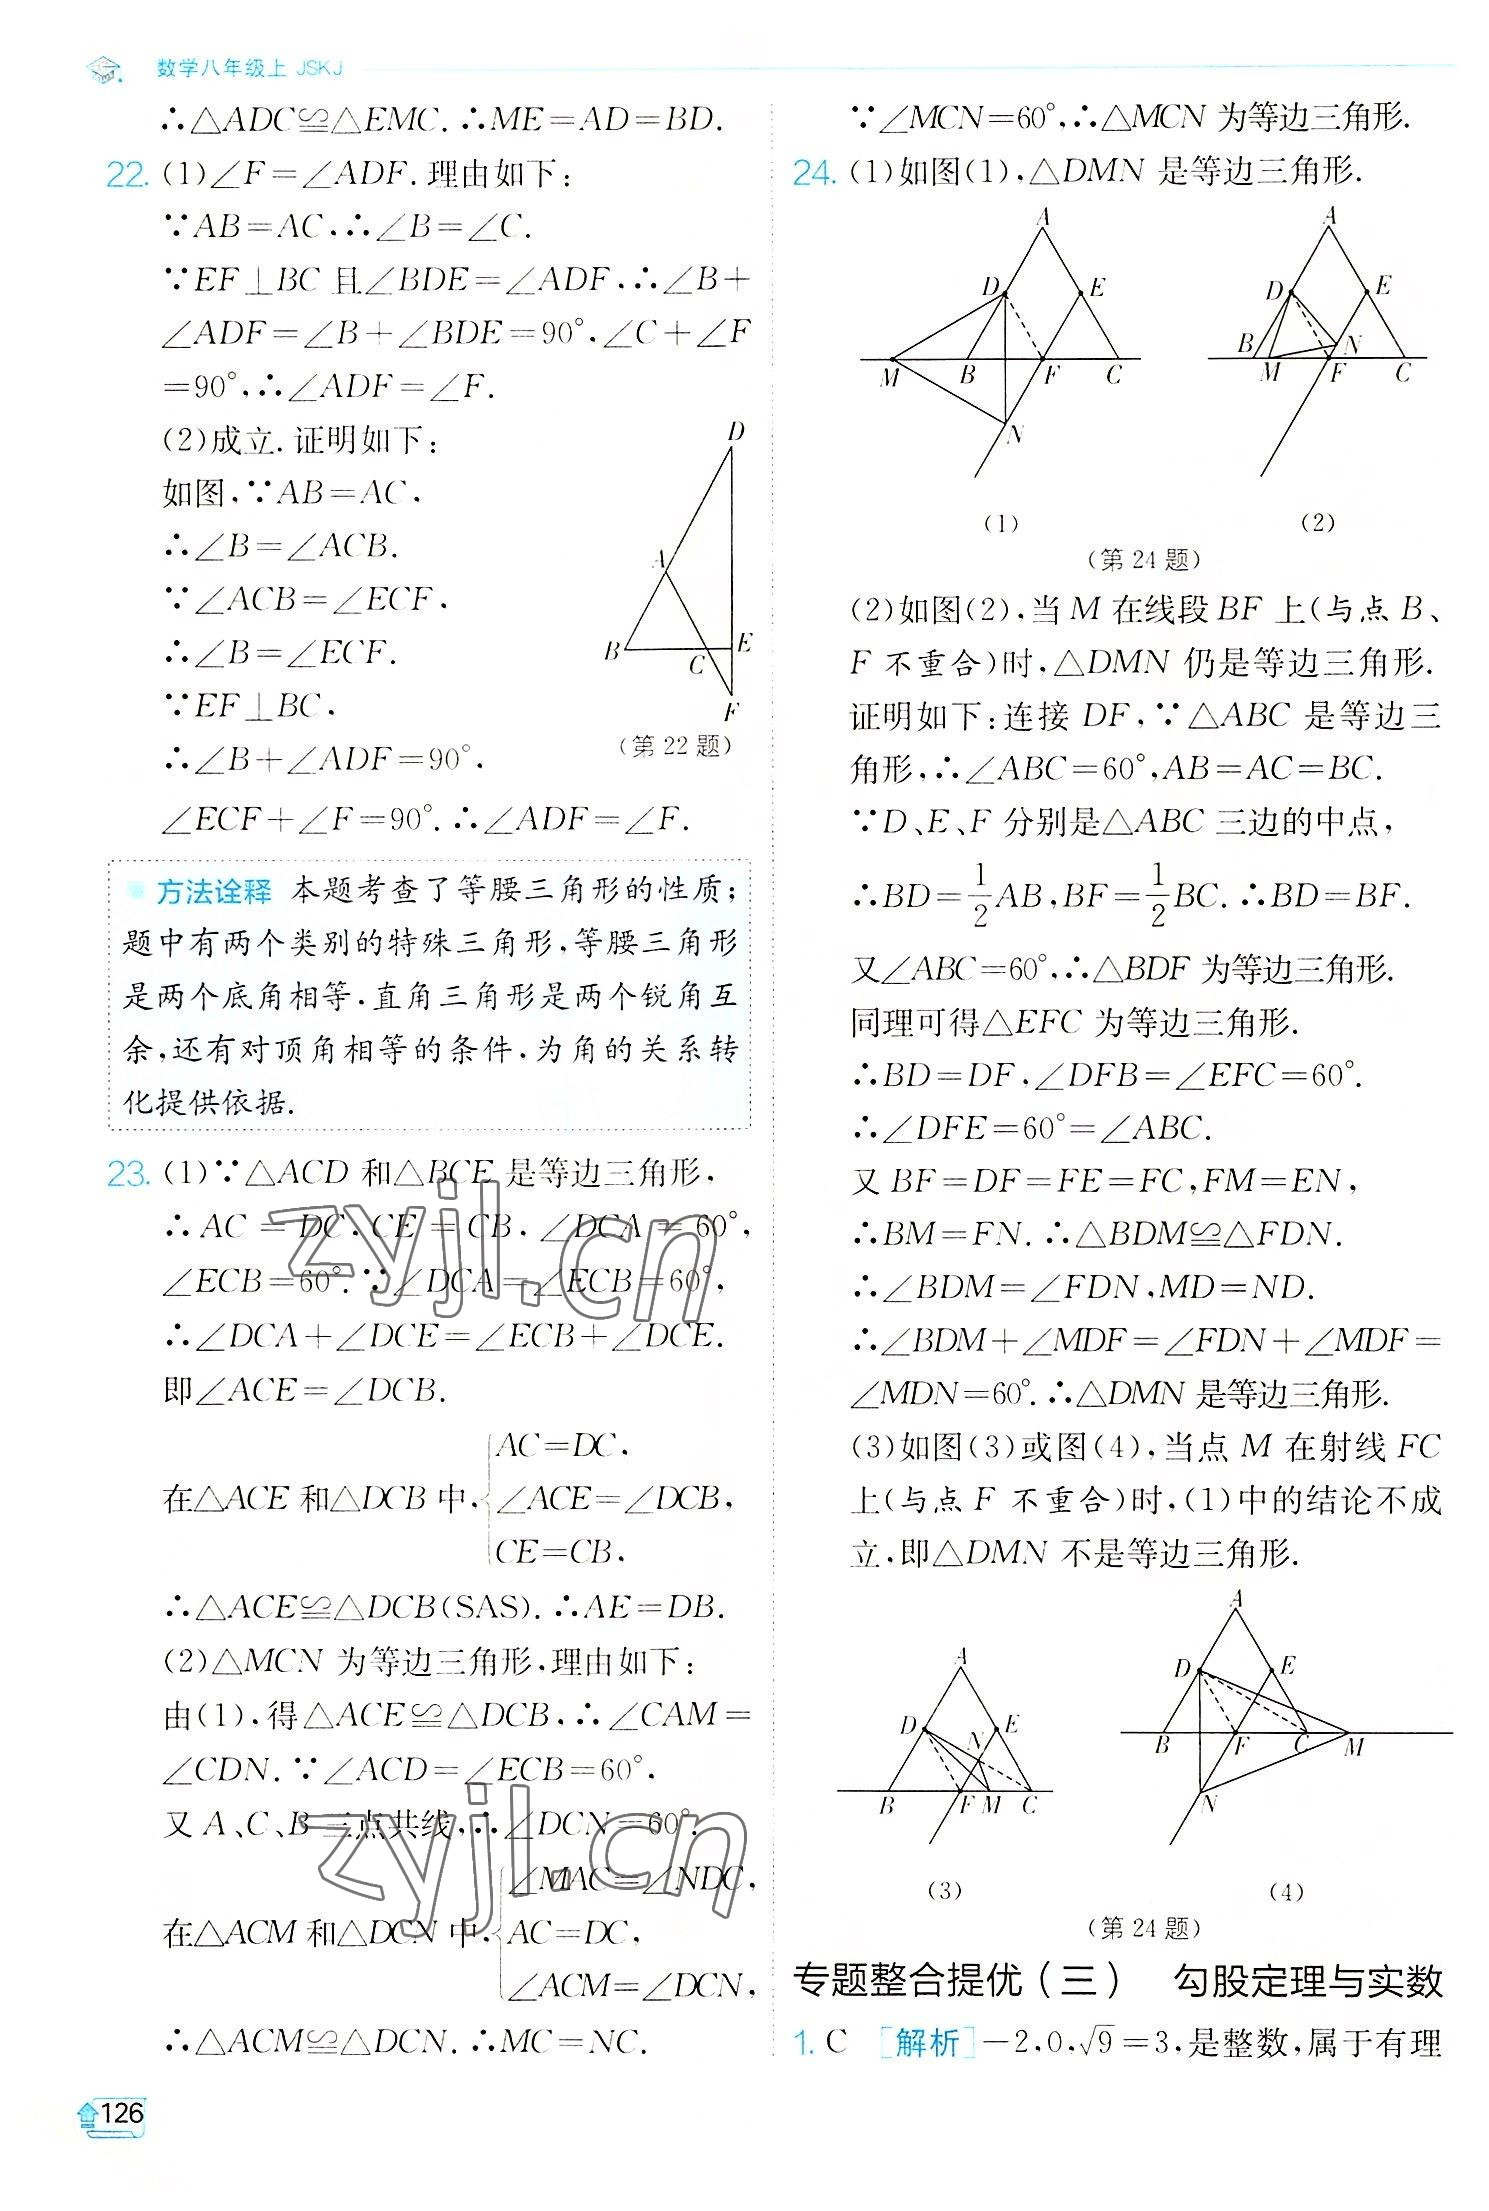 数学八年级上 JSKJ
∴△ADC≌△EMC.∴ME=AD=BD.
22. (1)∠F=∠ADF.理由如下:
∵AB=AC,∴∠B=∠C.
∵EF⊥BC且∠BDE=∠ADF,∴∠B+
∠ADF=∠B+∠BDE=90°,∠C+∠F
=90°,∴∠ADF=∠F.
(2)成立.证明如下:
如图,∵AB=AC,
∴∠B=∠ACB.
∵∠ACB=∠ECF,
∴∠B=∠ECF.
∵EF⊥BC,
∴∠B+∠ADF=90°,
∠ECF+∠F=90°.∴∠ADF=∠F.
D
A
B
C
E
F
(第22题)
方法诠释 本题考查了等腰三角形的性质;
题中有两个类别的特殊三角形,等腰三角形
是两个底角相等,直角三角形是两个锐角互
余,还有对顶角相等的条件,为角的关系转
化提供依据.
23. (1)∵△ACD和△BCE是等边三角形,
∴AC=DC,CE=CB,∠DCA=60°,
∠ECB=60°.∵∠DCA=∠ECB=60°,
∴∠DCA+∠DCE=∠ECB+∠DCE.
即∠ACE=∠DCB.
AC=DC,
在△ACE和△DCB中,{∠ACE=∠DCB,
CE=CB,
∴△ACE≌△DCB(SAS).∴AE=DB.
(2)△MCN为等边三角形,理由如下:
由(1),得△ACE≌△DCB,∴∠CAM=
∠CDN.∵∠ACD=∠ECB=60°,
又A、C、B三点共线,∴∠DCN=60°.
∠MAC=∠NDC,
在△ACM和△DCN中,{AC=DC,
∠ACM=∠DCN,
∴△ACM≌△DCN.∴MC=NC.
126
∵∠MCN=60°,∴△MCN为等边三角形.
24. (1)如图(1),△DMN是等边三角形.
A
D
E
M
B
F
C
N
(1)
A
D
E
B
M
N
F
C
(2)
(第24题)
(2)如图(2),当M在线段BF上(与点B、
F不重合)时,△DMN仍是等边三角形.
证明如下:连接DF,∵△ABC是等边三
角形,∴∠ABC=60°,AB=AC=BC.
∵D、E、F分别是△ABC三边的中点,
∴BD=1/2AB,BF=1/2BC.∴BD=BF.
又∠ABC=60°,∴△BDF为等边三角形.
同理可得△EFC为等边三角形.
∴BD=DF,∠DFB=∠EFC=60°.
∴∠DFE=60°=∠ABC.
又BF=DF=FE=FC,FM=EN,
∴BM=FN.∴△BDM≌△FDN.
∴∠BDM=∠FDN,MD=ND.
∴∠BDM+∠MDF=∠FDN+∠MDF=
∠MDN=60°.∴△DMN是等边三角形.
(3)如图(3)或图(4),当点M在射线FC
上(与点F不重合)时,(1)中的结论不成
立,即△DMN不是等边三角形.
A
D
N
E
B
F
M
C
(3)
A
D
E
B
F
C
M
N
(4)
(第24题)
专题整合提优(三) 勾股定理与实数
1. C [解析]-2,0,√9=3,是整数,属于有理
zyjl.cn
zyjl.cn